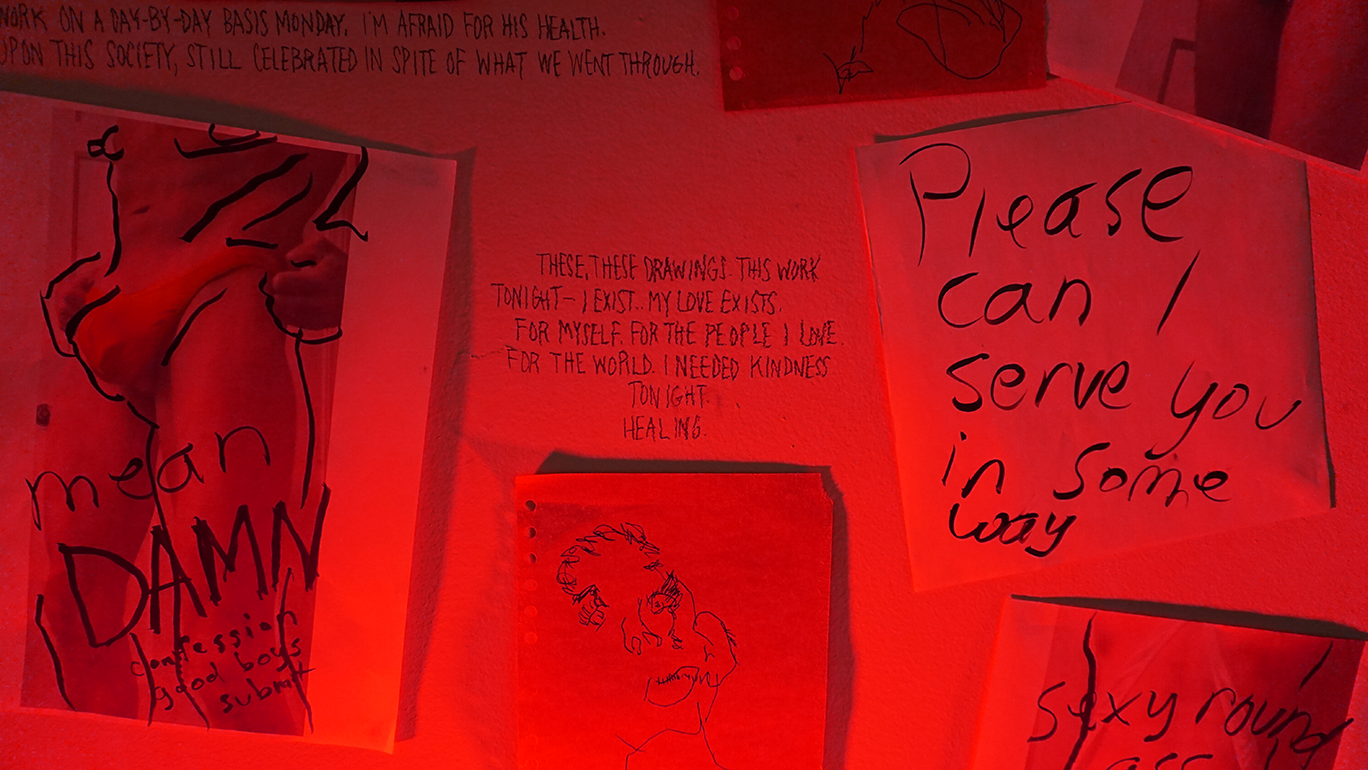 WORK ON A DAY-BY-DAY BASIS MONDAY. I'M AFRAID FOR HIS HEALTH.
UPON THIS SOCIETY, STILL CELEBRATED IN SPITE OF WHAT WE WENT THROUGH.
mean
DAMN
confession
good boys
submit
THESE, THESE DRAWINGS. THIS WORK
TONIGHT— I EXIST.. MY LOVE EXISTS.
FOR MYSELF. FOR THE PEOPLE I LOVE.
FOR THE WORLD. I NEEDED KINDNESS
TONIGHT.
HEALING.
Please
can I
serve you
in some
way
sexy round
ass